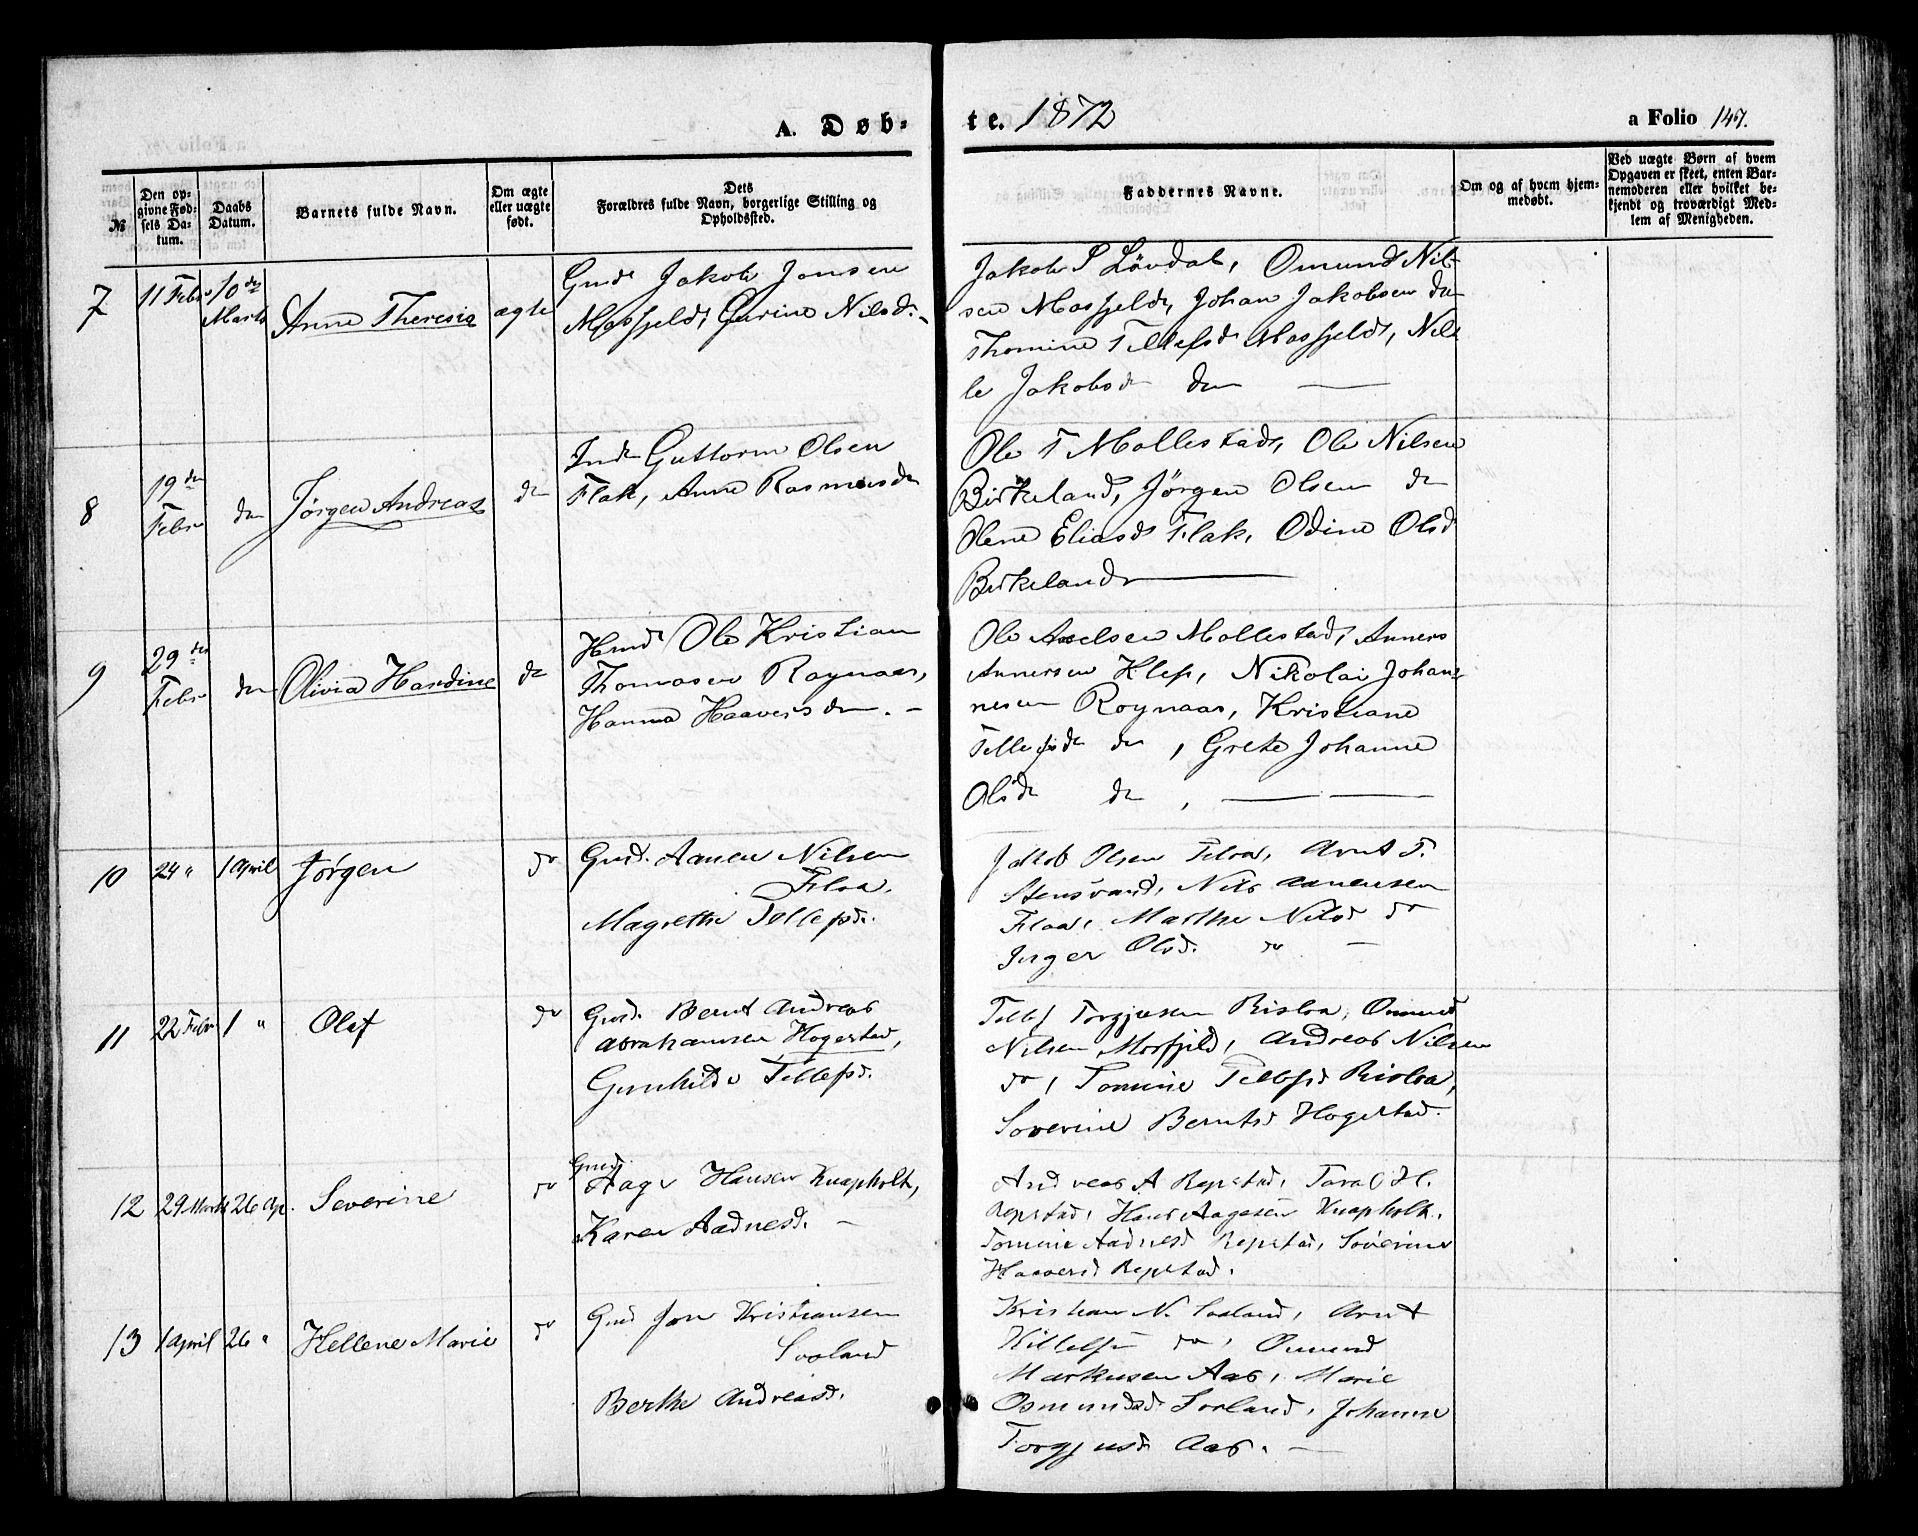 A. Døb-
te. 1872
a Folio 147.
№
Den op-
givne Fød-
sels Da-
tum.
Daabs
Datum.
Barnets fulde Navn.
Om ægte
eller uægte
født.
Dets
Forældres fulde Navn, borgerlige Stilling og
Opholdssted.
Faddernes Navne.
Om og af hvem hjem-
medøbt.
Ved uægte Børn af hvem
Opgaven er skeet, enten Bar-
nemoderen eller hvilket be-
kjendt og troværdigt Med-
lem af Menigheden.
7
11 Febr
10de
Marts
Anne Theresia
ægte
Gmd Jakob Jonsen
Mosfjeld, Gurine Nilsd. -
Jakob P Løvdal, Omund Nil-
sen Mosfjeld, Johan Jakobsen do
Thomine Tellefsd Mosfjeld, Nil-
le Jakobsd do
8
19de
Febr
do
Jørgen Andreas
do
Inds Guttorm Olsen
Flak, Anne Rasmusd
Ole T Mollestad, Ole Nilsen
Birkeland, Jørgen Olsen do
Olene Eliasd Flak, Odine Olsd
Birkeland
9
29de
Febr
do
Olivia Hardine
do
Hmd Ole Kristian
Thomasen Roynaas,
Hanna Haaversd. -
Ole Axelsen Mollestad, Anners
Annersen Klep, Nikolai Johan-
nesen Roynaas, Kristiane
Tellefsd do, Grete Johanne
Olsd do,
10
24 "
1 April
Jørgen
do
Gmd. Aanen Nilsen
Filaa.
Magrethe Tellefsd.
Jakob Olsen Filaa, Arnt T.
Stensvand, Nils Aanensen
Filaa, Marthe Nilsd do
Inger Olsd. do -
11
22 Febr
1 "
Olef
do
Gmd. Bernt Andreas
Abrahamsen Hogestad,
Gunhilde Tellefsd.
Tellef Torgjusen Risløa, Omund
Nilsen Mosfjeld, Andreas Nilsen
do, Tomine Tellefsd Risløa,
Soverine Berntsd Hogestad.
12
29 Marts
26 Ap.
Severine
do
Gmd.
Aage Hansen Knapholt,
Karen Aadnesd. -
Andreas A Repstad, Taral H.
Repstad, Hans Aagesen Knapholt.
Tomine Aadnesd Repstad, Soverine
Haaversd Repstad.
13
1 April
26 "
Hellene Marie
do
Gmd Jon Kristiansen
Sosland
Berthe Andreasd.
Kristian N. Sosland, Arnt
Kittelsen do, Omund
Markusen Aas, Marie
Osmundsd Sorland, Johanne
Torgjusd Aas. -